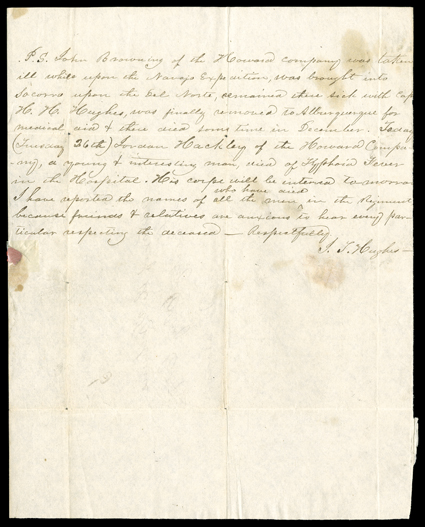 P.S. John Browning of the Howard company was taken
ill while upon the Navajo Expedition, was brought into
Socorro upon the Del Norte, remained there sick with Cap
H. H. Hughes, was finally removed to Alburquerque for
medical aid & there died some time in December. Today
(Tuesday 26th) Jordan Hackley of the Howard Compa-
ny, a young & interesting man, died of Typhoid Fever
in the Hospital. His corpse will be intered tomorrow
who have died
I have reported the names of all the men in the Regiment
because friends & relatives are anxious to hear every par-
ticular respecting the deceased — Respectfully
J. T. Hughes —